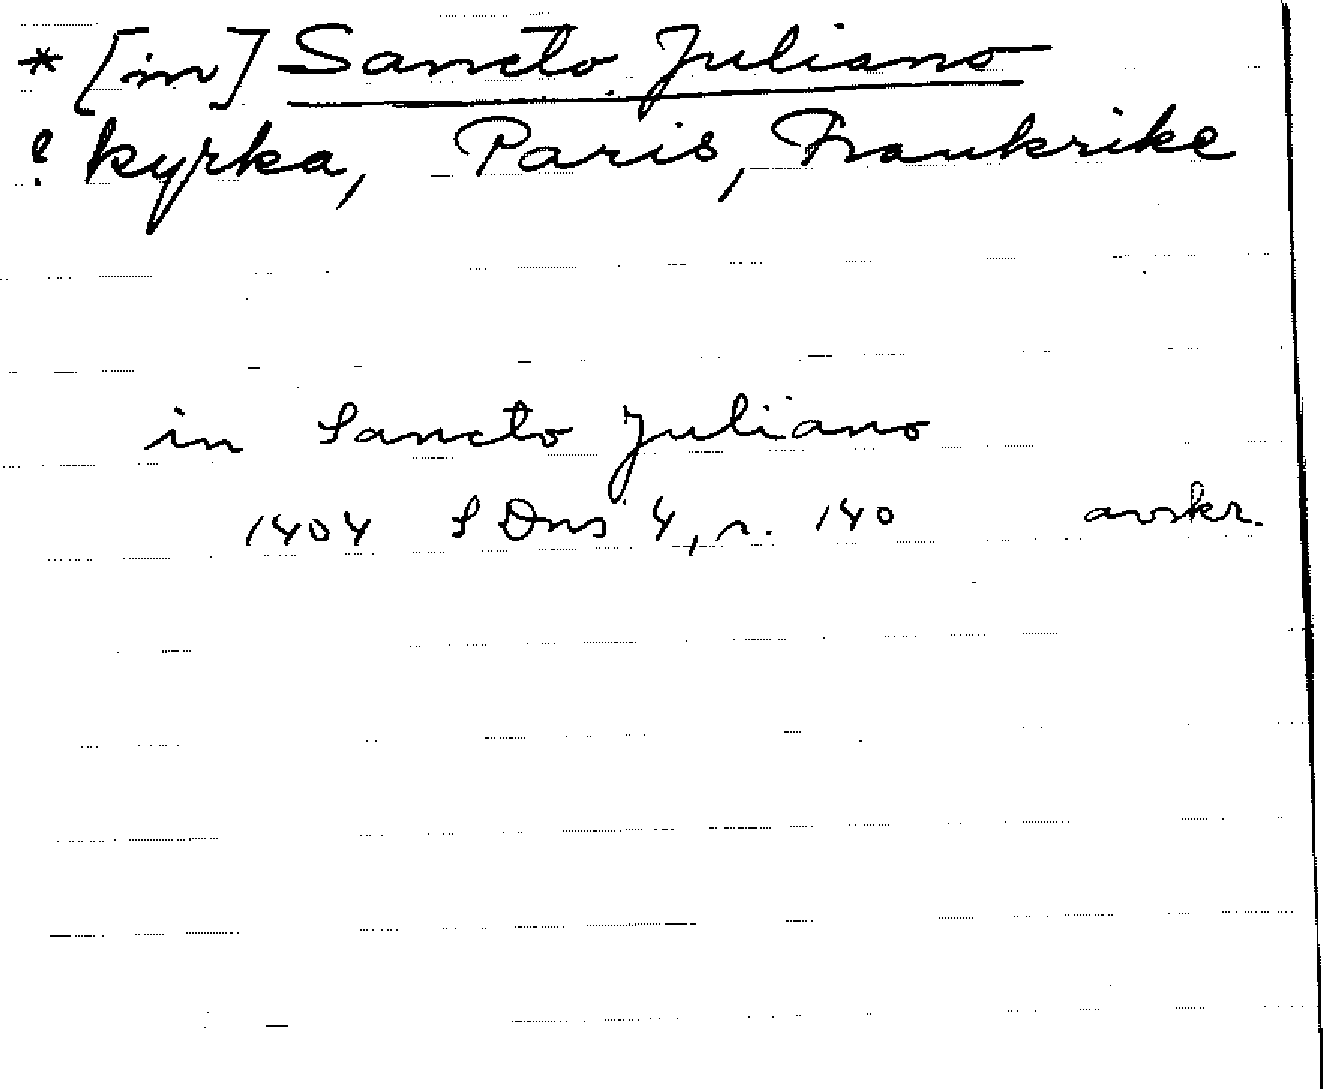 * [in] Sancto Juliano
? kyrka, Paris, Frankrike
in Sancto Juliano
1404 SDns 4, s. 140 avskr.